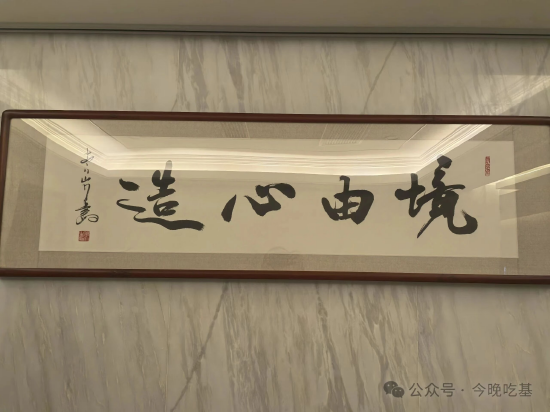 境由心造
公众号·今晚吃基